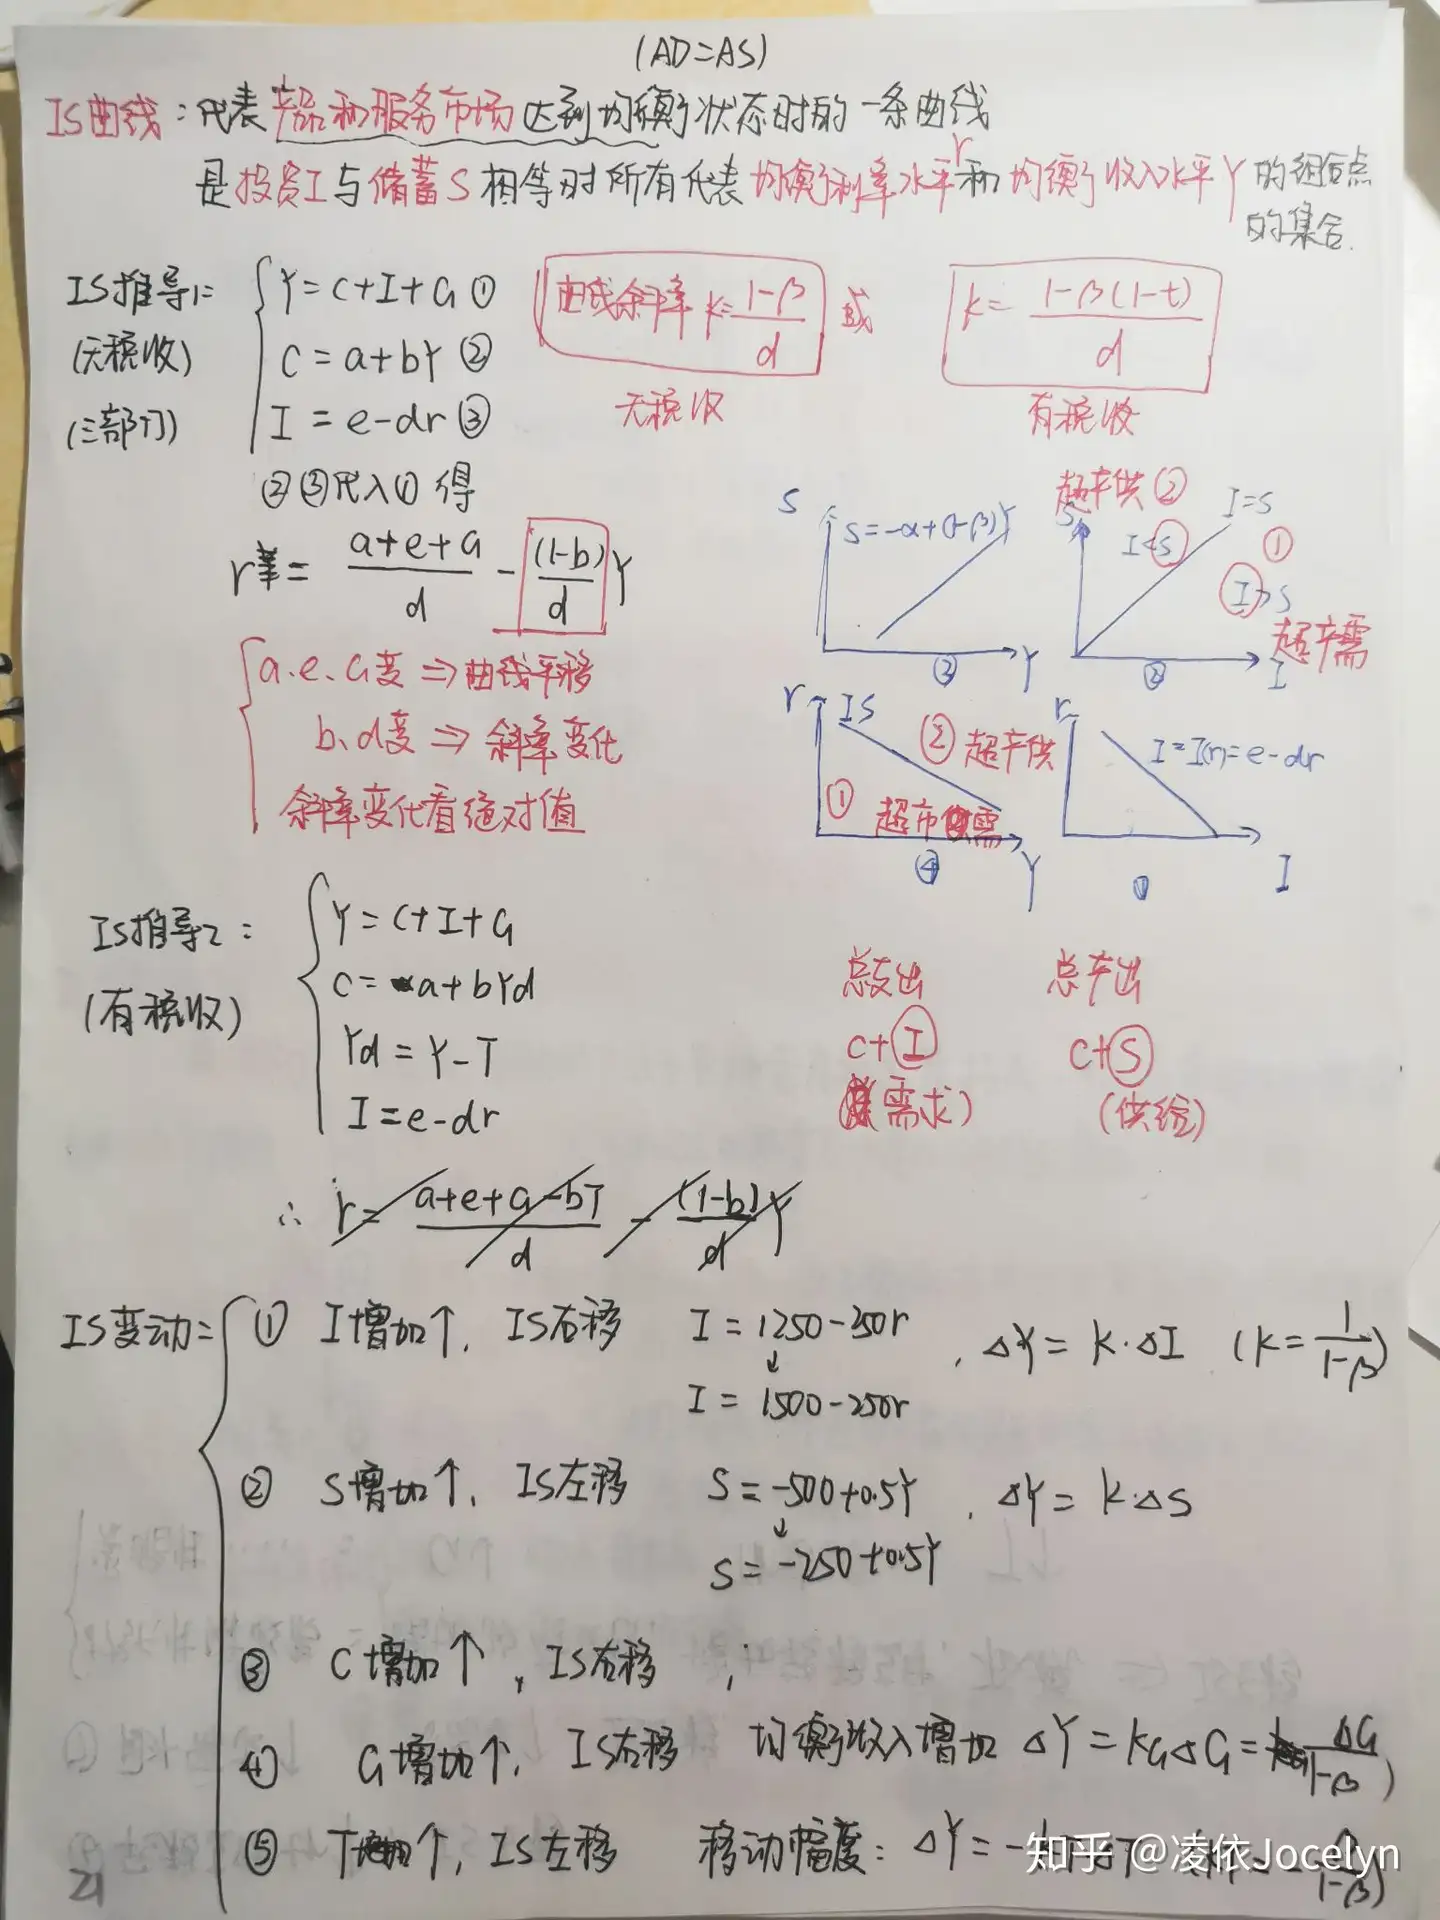 (AD=AS)
IS曲线：代表产品和服务市场达到均衡状态时的一条曲线
是投资I与储蓄S相等时所有代表均衡利率水平r和均衡收入水平Y的组合点
的集合.
IS推导1:
(无税收)
(三部门)
Y=C+I+G ①
C=a+bY ②
I=e-dr ③
②③代入①得
r=(a+e+G)/d-(1-b)/d Y
曲线斜率 k=(1-β)/d 或 k=(1-β(1-t))/d
无税收 有税收
a.e.G变⇒曲线平移
b、d变⇒斜率变化
斜率变化看绝对值
S S=-α+(1-β)Y Y ③
超产供② S I=S I<S ① I>S 超产需 I ②
r IS ②超产供 ① 超市需 Y ④
r I=I(r)=e-dr I ①
IS推导2:
(有税收)
Y=C+I+G
C=a+bYd
Yd=Y-T
I=e-dr
总支出 总产出
C+I C+S
(需求) (供给)
∴ r=(a+e+G-bT)/d-(1-b)/d Y
IS变动=
① I增加↑, IS右移 I=1250-250r , ΔY=K·ΔI (K=1/(1-β))
↓
I=1500-250r
② S增加↑, IS左移 S=-500+0.5Y , ΔY=K·ΔS
↓
S=-250+0.5Y
③ C增加↑, IS右移,
④ G增加↑, IS右移 均衡收入增加 ΔY=KGΔG=ΔG/(1-β)
⑤ T增加↑, IS左移 移动幅度: ΔY=-
21
知乎 @凌依Jocelyn